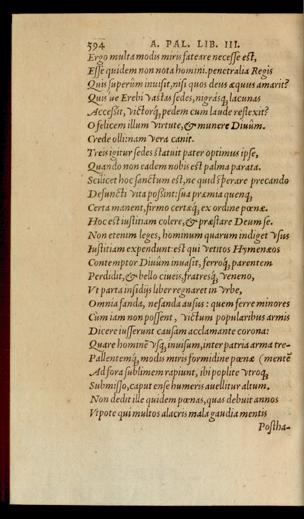 394 A. PAL. LIB. III.
Ergo multa modis miris fateare necesse est,
Esse quidem non nota homini. penetralia Regis
Quis superûm inuisit, nisi quos deus æquus amarit?
Quis´ue Erebi vastas sedes, nigrásq; lacunas
Accessit, victórq; pedem cum laude reflexit?
O felicem illum virtute, & munere Diuûm.
Crede olli: nam vera canit.
Treis igitur sedes statuit pater optimus ipse,
Quando non eadem nobis est palma parata.
Scilicet hoc sanctum est, ne quid sperare precando
Defuncti vita possint: sua præmia quenq;
Certa manent, firmo certaq; ex ordine pœnæ.
Hoc est iustitiam colere, & præstare Deum se.
Non etenim leges, hominum quarum indiget vsus
Iustitiam expendunt: est qui vetitos Hymenæos
Contemptor Diuûm inuasit, ferroq; parentem
Perdidit, & bello ciueis, fratresq; veneno,
Vt parta insidijs liber regnaret in vrbe,
Omnia fanda, nefanda ausus: quem ferre minores
Cum iam non possent, victum popularibus armis
Dicere iusserunt causam acclamante corona:
Quare hominē vsq; inuisum, inter patria arma tre-
Pallentemq; modis miris formidine pœnæ (mentē
Ad fora sublimem rapiunt, ibi poplite vtroq;
Submisso, caput ense humeris auellitur altum.
Non dedit ille quidem pœnas, quas debuit annos
Vipote qui multos alacris mala gaudia mentis
Postha-